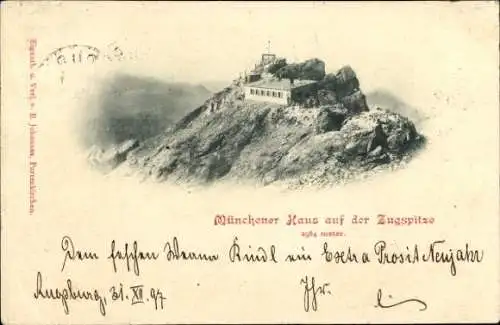 Eigenth. u. Verl. v. B. Johannes, Partenkirchen.
Münchener Haus auf der Zugspitze
2964 meter.
Dem feschen Werner Kindl ein Extra Prosit Neujahr
Augsburg, 31. XII. 97
Ihr